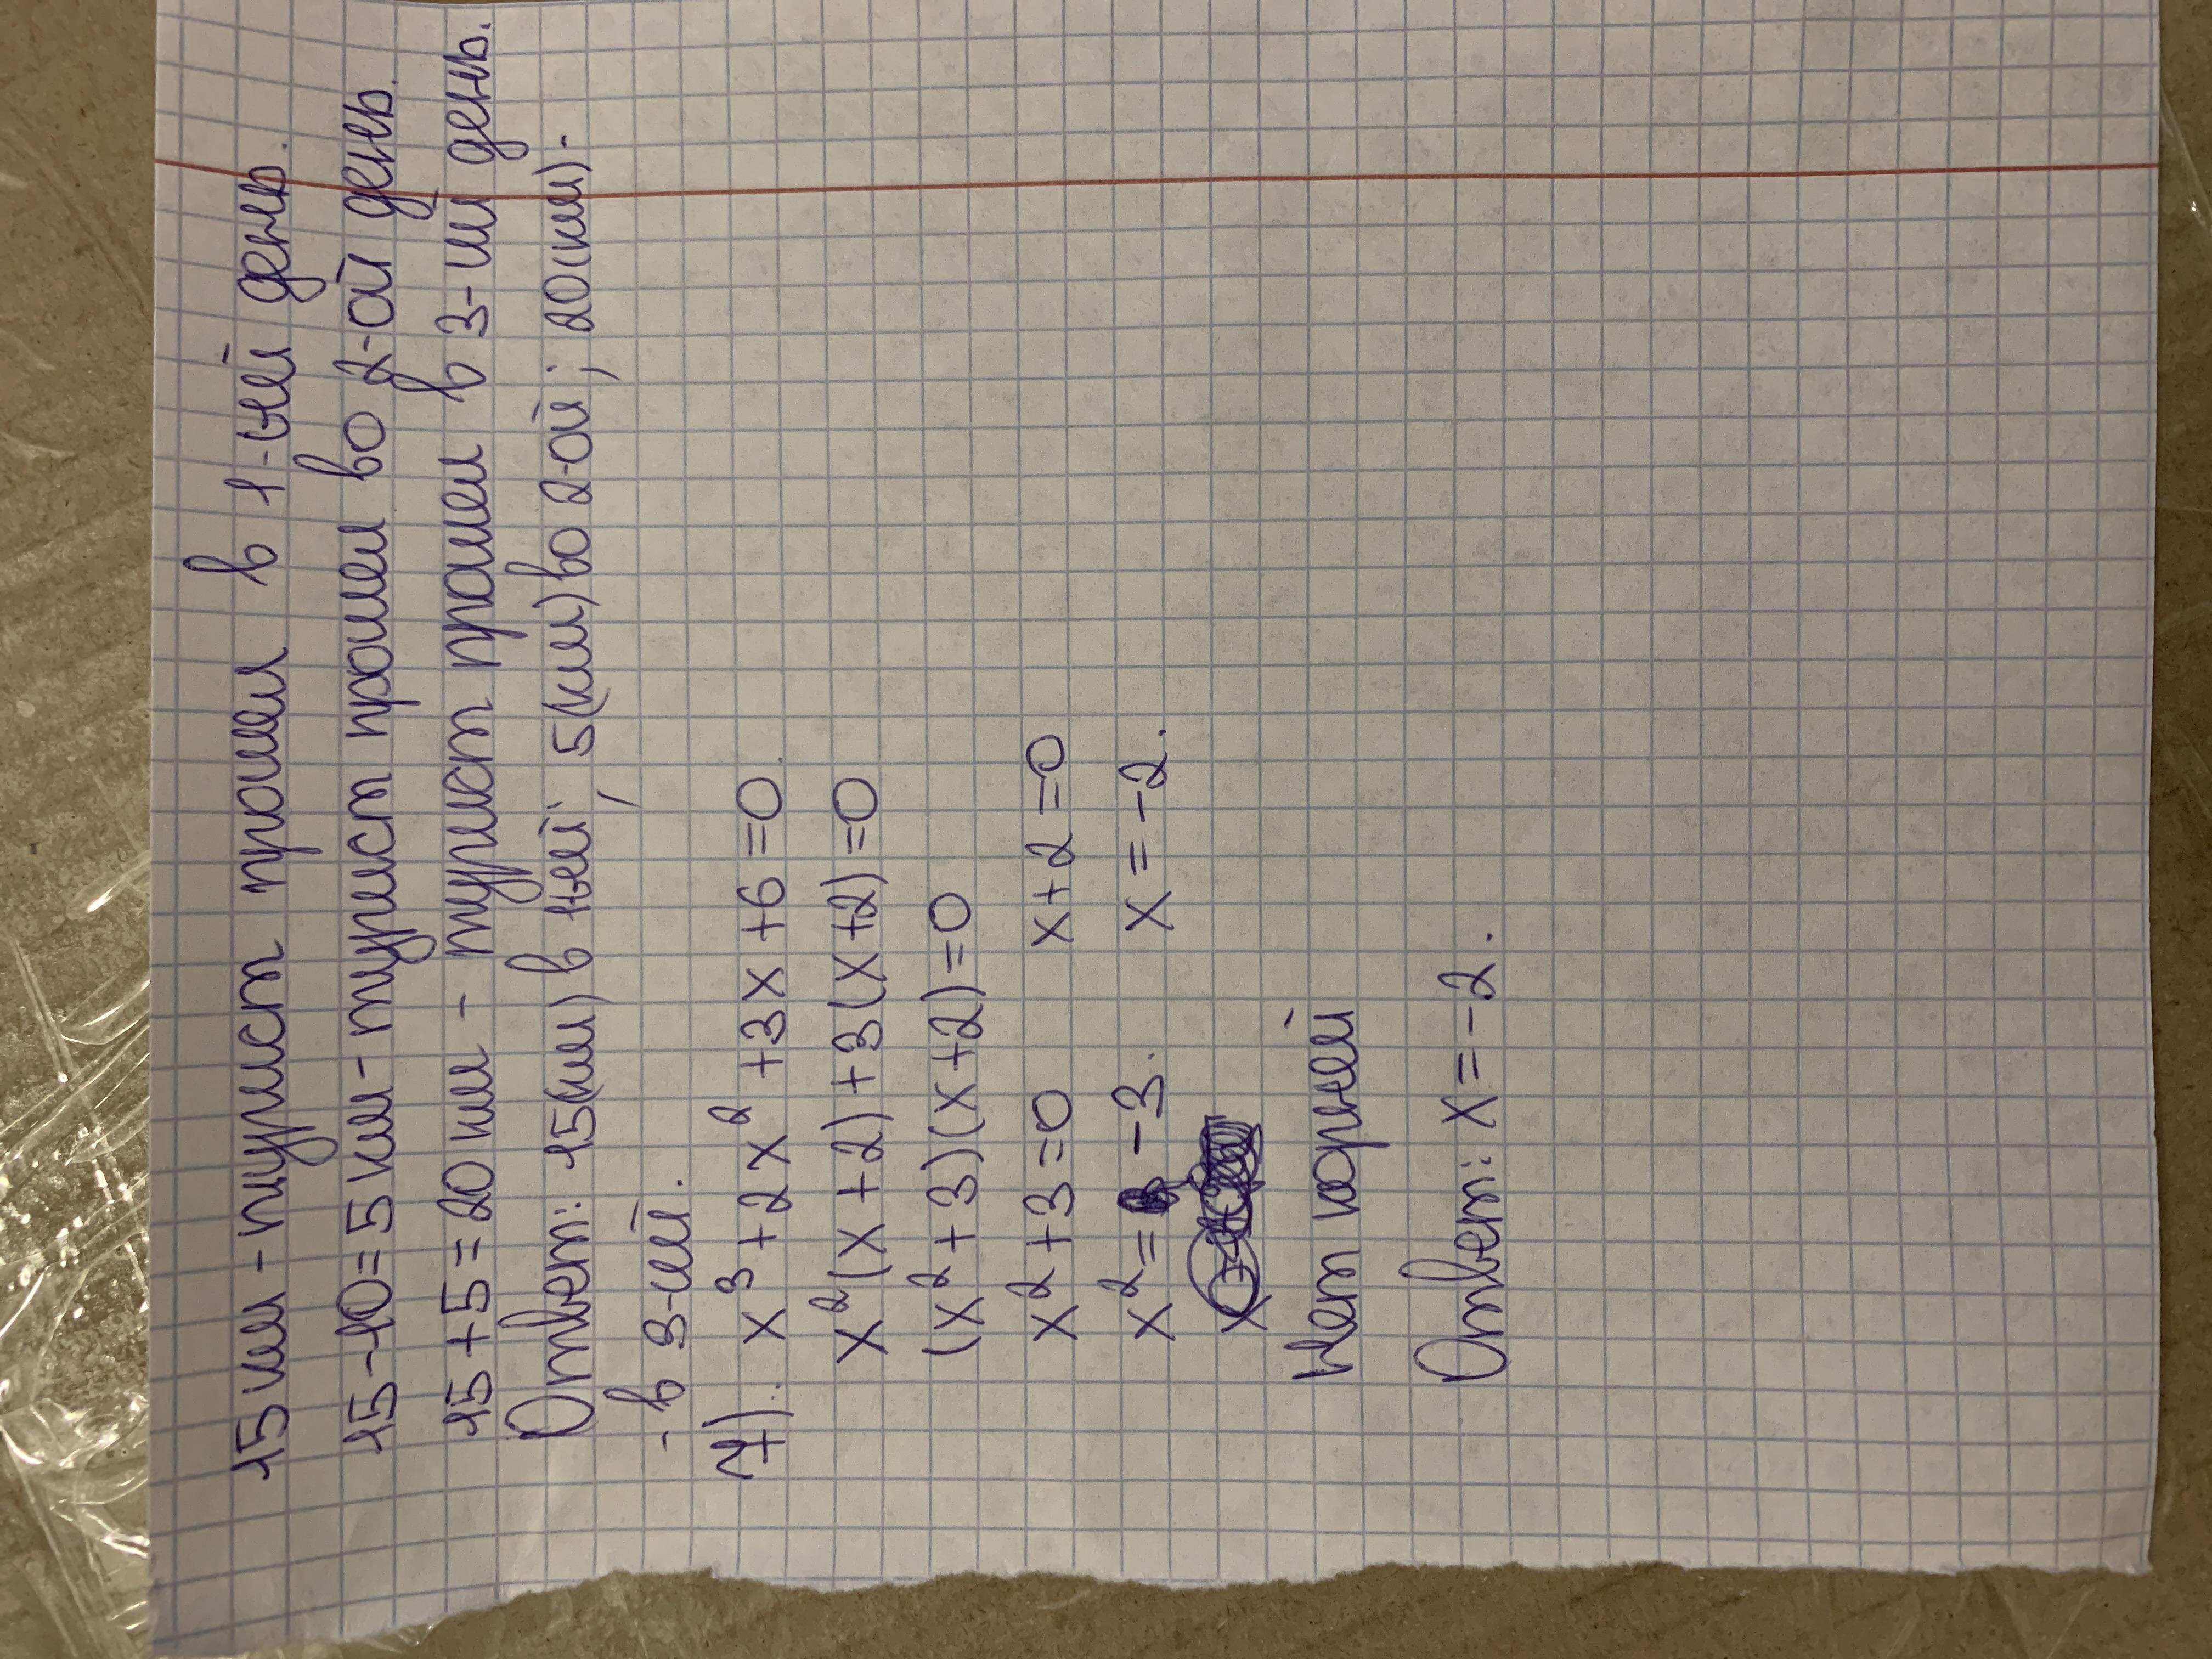 15 км - турист прошел в 1-ый день.
15-10=5 км - турист прошел во 2-ой день.
15+5=20 км - турист прошел в 3-ий день.
Ответ: 15(км) в 1ый; 5(км) во 2-ой; 20(км)-
- в 3-ий.
7). x³+2x²+3x+6=0.
x²(x+2)+3(x+2)=0
(x²+3)(x+2)=0
x²+3=0 x+2=0
x²=-3. x=-2.
x
Нет корней
Ответ: x=-2.